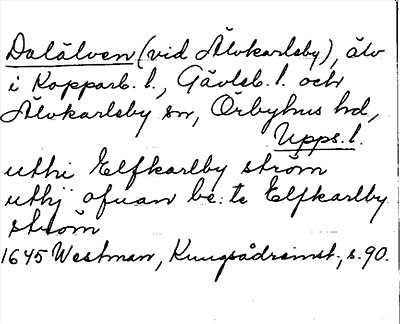 Dalälven (vid Älvkarleby), älv
i Kopparb. l., Gävleb. l. och
Älvkarleby sn, Örbyhus hd,
Upps. l.
uthi Elfkarlby ström
uthj ofuan be:te Elfkarlby
ström
1645 Westman, Kungsådreinst., s. 90.